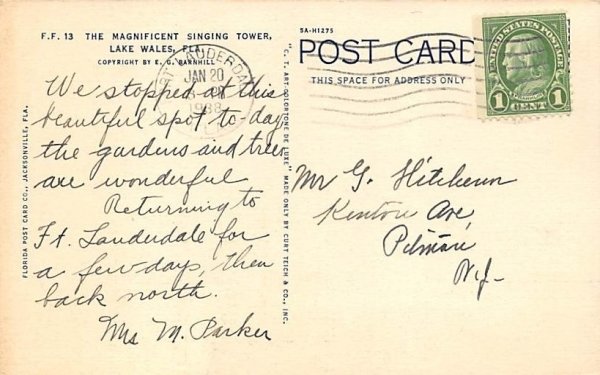 F.F. 13 THE MAGNIFICENT SINGING TOWER,
LAKE WALES, FLA.
COPYRIGHT BY E. G. BARNHILL
We stopped at this
beautiful spot to-day
the gardens and trees
are wonderful
Returning to
Ft. Lauderdale for
a few days, then
back north.
Mrs M. Parker
FLORIDA POST CARD CO., JACKSONVILLE, FLA.
"C. T. ART-COLORTONE DE LUXE" MADE ONLY BY CURT TEICH & CO., INC.
5A-H1275
POST CARD
THIS SPACE FOR ADDRESS ONLY
LAUDERDALE
JAN 20
1938
UNITED STATES POSTAGE
FRANKLIN
1 CENT 1
Mr G. Hitchcun
Kenton Ave,
Pitman
N.J.